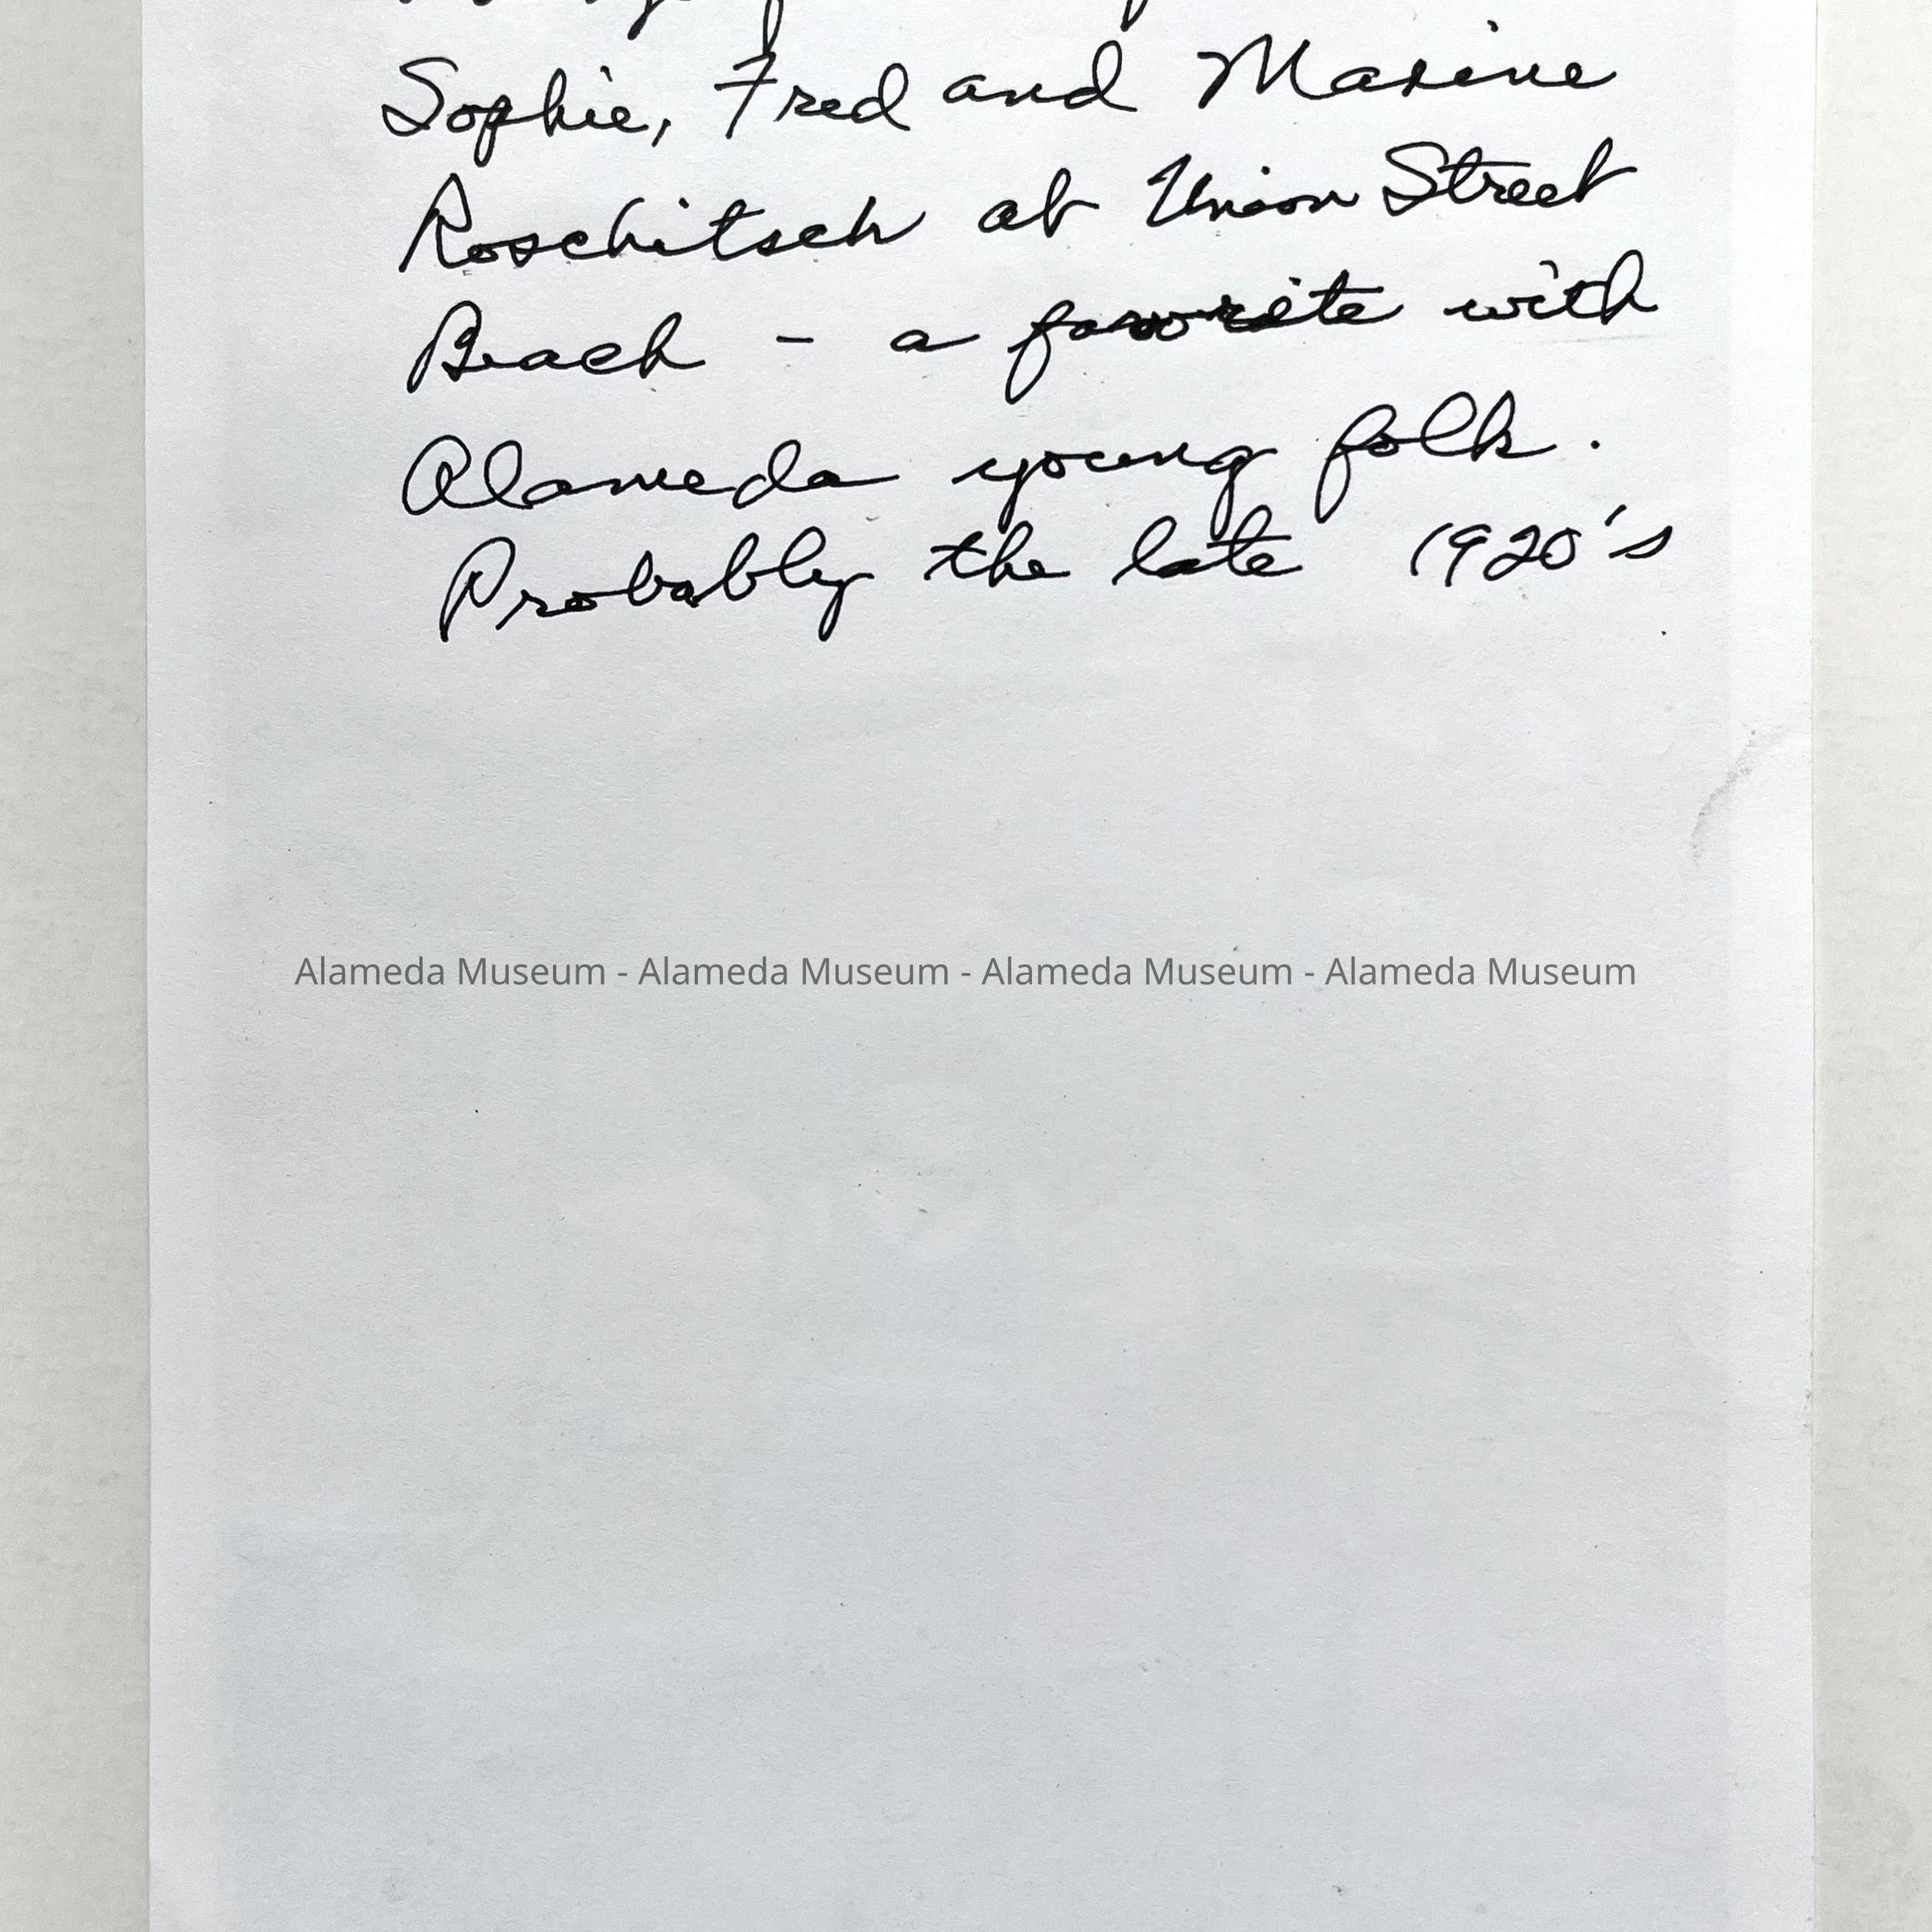 Sophie, Fred and Maxine
Roschitsch at Union Street
Beach - a favorite with
Alameda young folk.
Probably the late 1920's
Alameda Museum - Alameda Museum - Alameda Museum - Alameda Museum